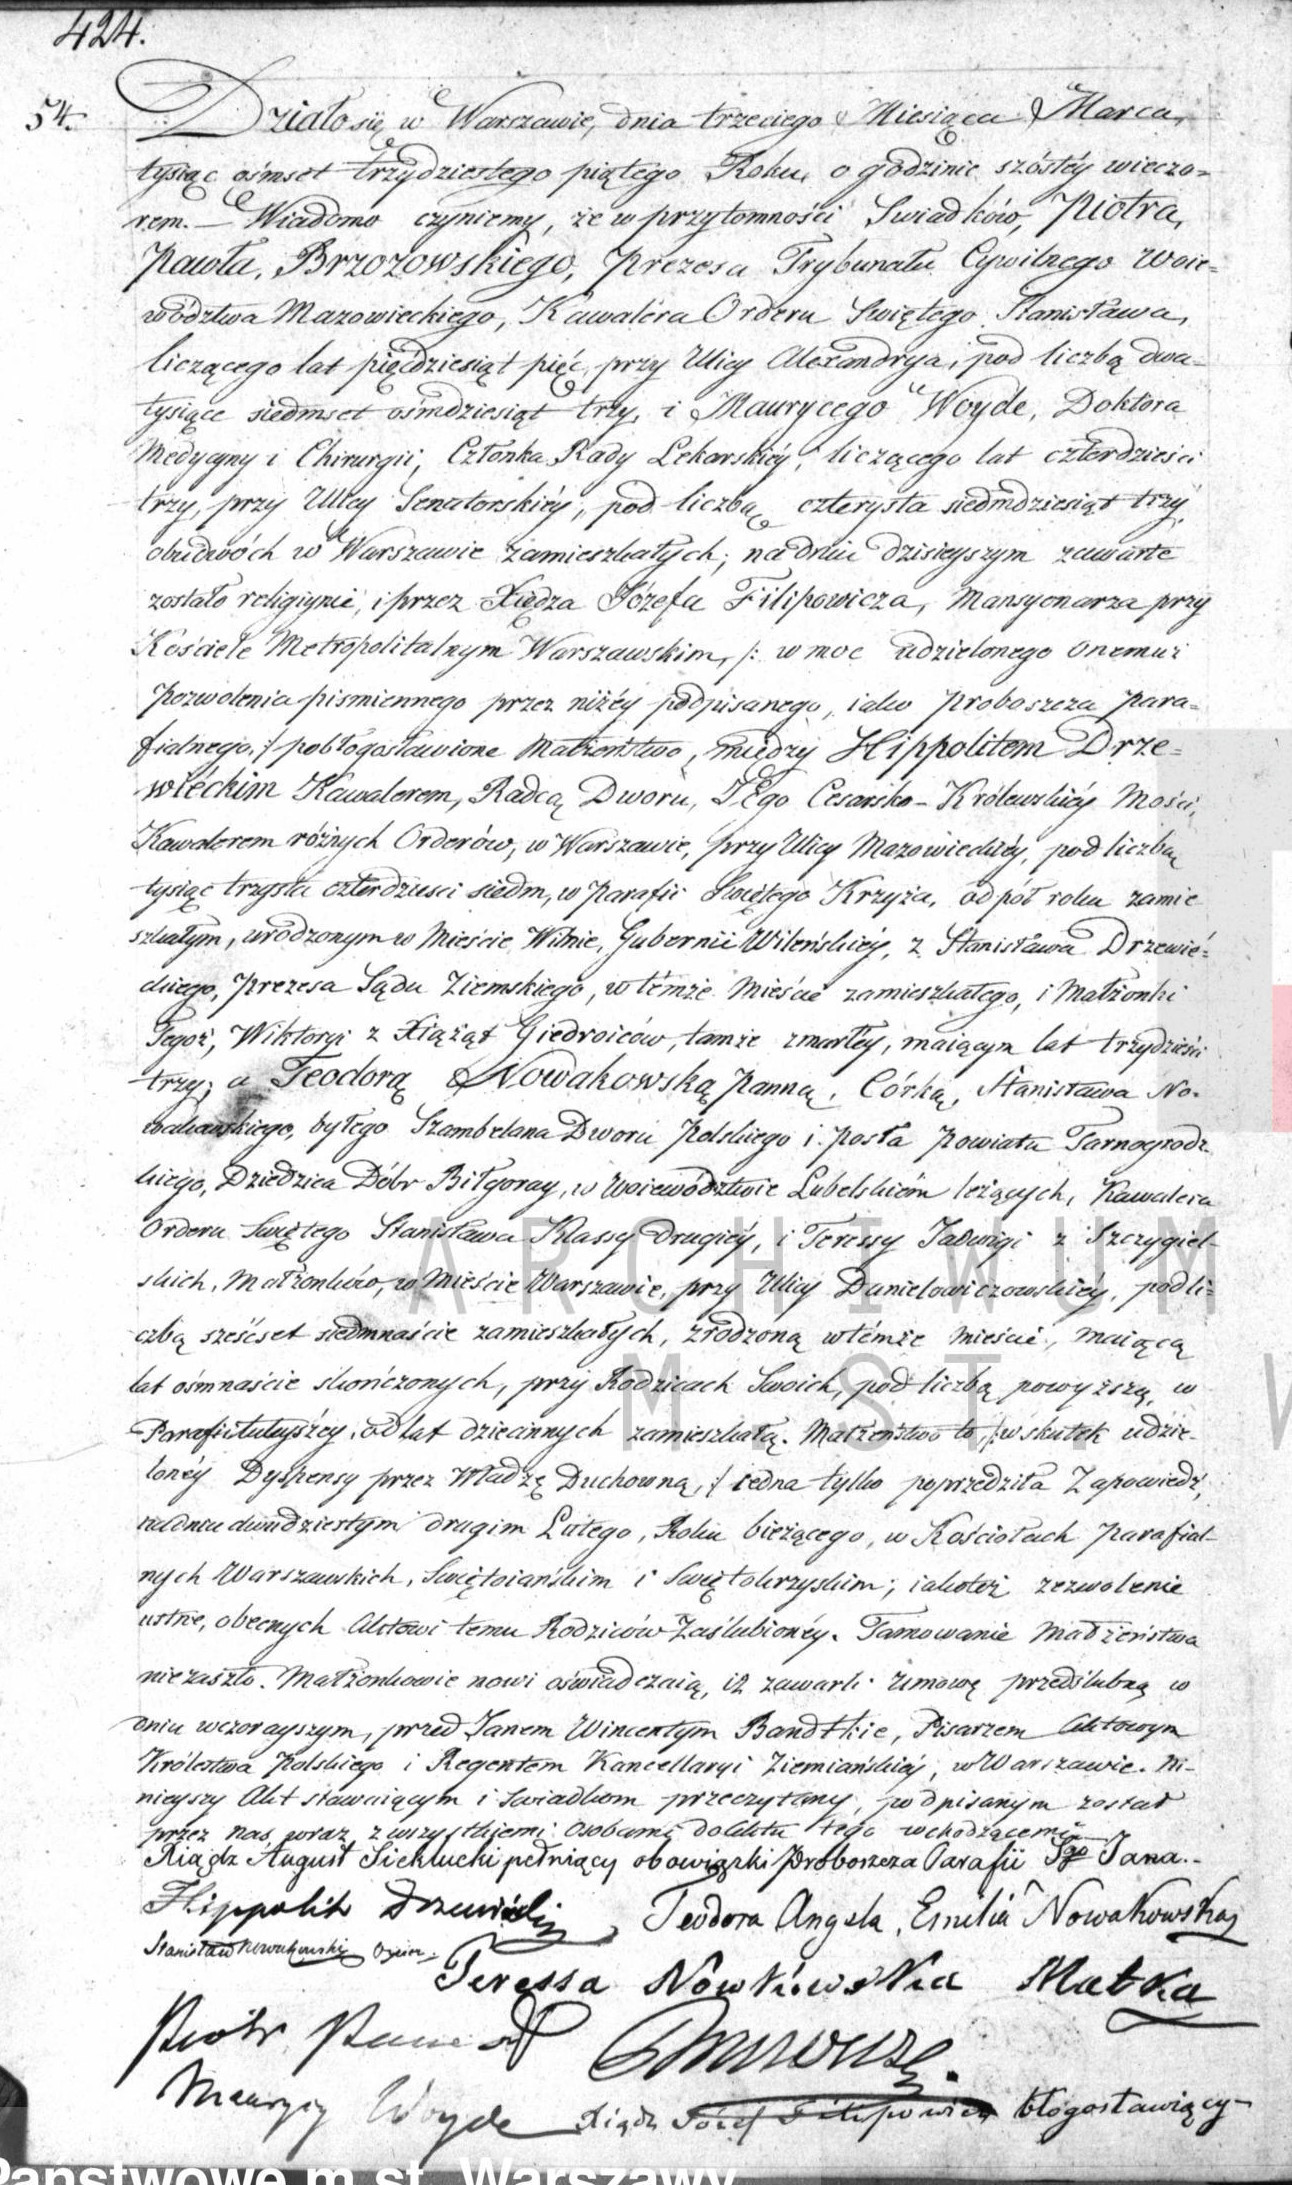 424.
54. Działo się w Warszawie, dnia trzeciego Miesiąca Marca,
tysiąc ośmset trzydziestego piątego Roku, o godzinie szóstéy wieczo-
rem. — Wiadomo czyniemy, że w przytomności Swiadków, Piotra,
Pawła, Brzozowskiego, Prezesa Trybunału Cywilnego Woie-
wództwa Mazowieckiego, Kawalera Orderu Swiętego Stanisława,
liczącego lat pięćdziesiąt pięć, przy Ulicy Alexandrya, pod liczbą dwa-
tysiące siedmset ośmdziesiąt trzy, i Maurycego Woyde, Doktora
Medycyny i Chirurgii, Członka Rady Lekarskiéy, liczącego lat czterdzieści
trzy, przy Ulicy Senatorskiéy, pod liczbą czterysta siedmdziesiąt trzy
obudwóch w Warszawie zamieszkałych; na dniu dzisieyszym zawarte
zostało religiynie, i przez Xiędza Józefa Filipowicza, Mansyonarza przy
Kościele Metropolitalnym Warszawskim, /: w moc udzielonego onemuż
Pozwolenia pismiennego przez niżéy podpisanego, iako Proboszcza Para-
fialnego, :/ pobłogosławione Małżeństwo, między Hippolitem Drze-
wieckim Kawalerem, Radcą Dworu, JEgo Cesarsko-Królewskiéy Mości,
Kawalerem różnych Orderów, w Warszawie, przy Ulicy Mazowieckiéy, pod liczbą
tysiąc trzysta czterdzieści siedm, w Parafii Swiętego Krzyża, od pół roku zamie
szkałym, urodzonym w Mieście Wilnie, Gubernii Wileńskiéy, z Stanisława Drzewie-
ckiego, Prezesa Sądu Ziemskiego, w témże Mieście zamieszkałego, i Małżonki
Tegoż, Wiktoryi z Xiążąt Giedroiców, tamże zmarłéy, maiącym lat trzydzieści
trzy; a Teodorą Nowakowską Panną, Córką, Stanisława No-
wakowskiego, byłego Szambelana Dworu Polskiego i Posła Powiatu Tarnogrodz
kiego, Dziedzica Dóbr Biłgoray, w Województwie Lubelskiém leżących, Kawalera
Orderu Swiętego Stanisława Klassy Drugiéy, i Teressy Jadwigi z Szczygiel-
skich, Małżonków, w Mieście Warszawie, przy Ulicy Danielowiczowskiéy, pod li-
czbą sześćset siedmnaście zamieszkałych, zrodzoną w témże Mieście, maiącą
lat ośmnaście skończonych, przy Rodzicach Swoich, pod liczbą powyższą, w
Parafii tuteyszéy, od lat dziecinnych zamieszkałą. Małżeństwo to, /: w skutek udzie-
lonéy Dyspensy przez Władzę Duchowną, :/ iedna tylko poprzedziła Zapowiedź,
na dniu dwudziestym drugim Lutego, Roku bieżącego, w Kościołach Parafial-
nych Warszawskich, Swiętoiańskim i Swiętokrzyskim; iakoteż zezwolenie
ustne, obecnych Aktowi temu Rodziców Zaślubionéy. Tamowanie Małżeństwa
nie zaszło. Małżonkowie nowi oświadczaią, iż zawarli Umowę przedślubną w
dniu wczorayszym, przed Janem Wincentym Bandtkie, Pisarzem Aktowym
Królestwa Polskiego i Regentem Kancellaryi Ziemiańskiéy, w Warszawie. Ni-
nieyszy Akt stawaiącym i Swiadkom przeczytany, podpisanym został
przez Nas, wraz z wszystkiemi Osobami do Aktu tego wchodzącemi.
Xiądz August Sieklucki pełniący obowiązki Proboszcza Parafii Sgo Jana.
Hippolit Drzewiecki Teodora Angela, Emilia Nowakowska
Stanisław Nowakowski Oyciec
Teressa Nowkowska Matka
Piotr Paweł Brzozowski
Maurycy Woyde Xiądz Józef Filipowicz błogosławiący
ARCHIWUM
M. ST. W
Państwowe m.st. Warszawy